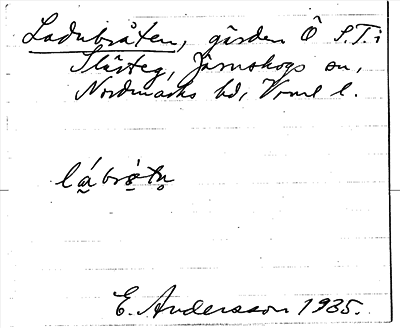 Ladubråten, gården Ö S.T. i
Slästeg, Järnskogs sn,
Nordmarks hd, Vrml l.
lábrå̀tn̥
E. Andersson 1935.